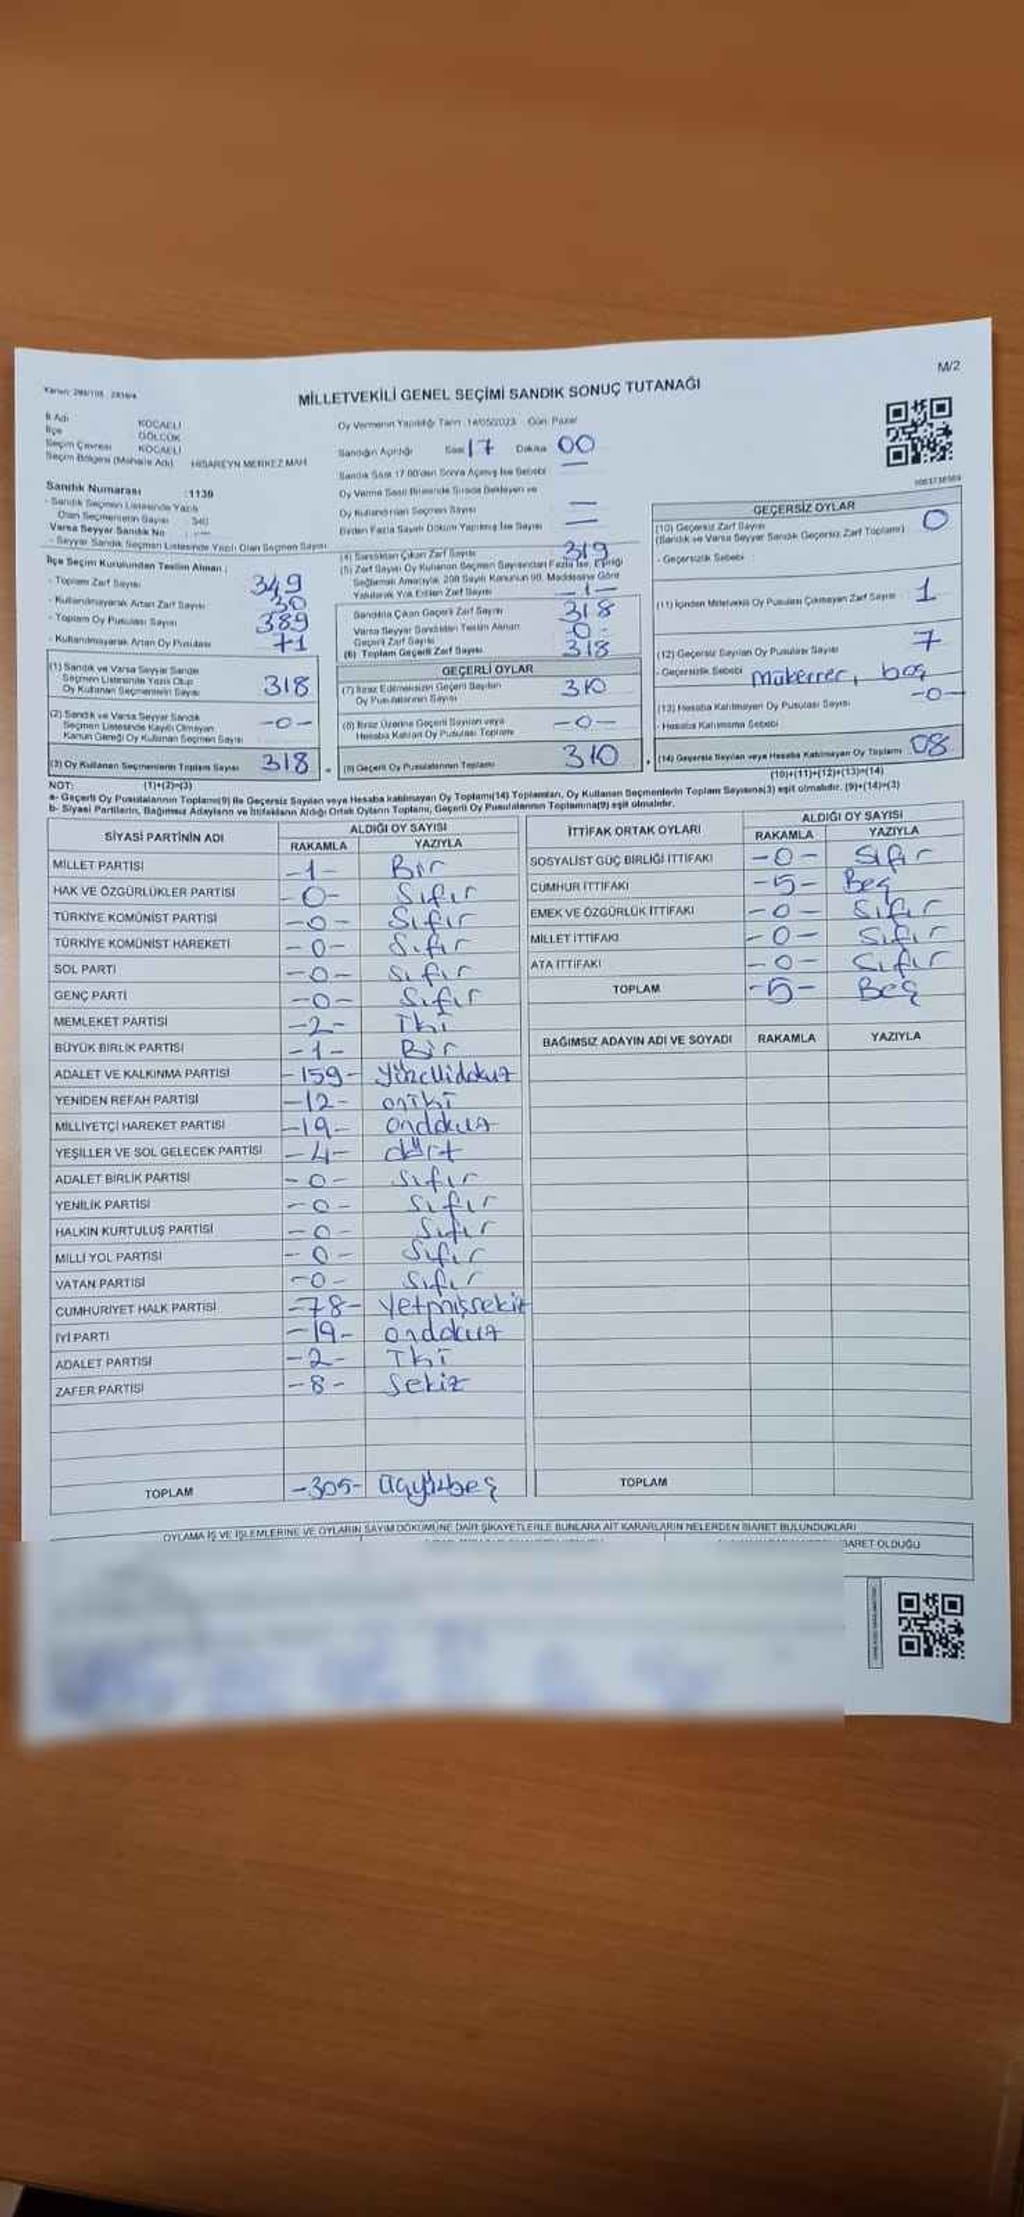 M/2
MİLLETVEKİLİ GENEL SEÇİMİ SANDIK SONUÇ TUTANAĞI
İl Adı KOCAELİ
İlçe GÖLCÜK
Seçim Çevresi KOCAELİ
Seçim Bölgesi (Mahalle Adı) HİSAREYN MERKEZ MAH
Oy Vermenin Yapıldığı Tarih 14/05/2023 Gün: Pazar
Sandığın Açıldığı Saat 17 Dakika 00
Sandık Saat 17.00'den Sonra Açılmış İse Sebebi —
Sandık Numarası :1139
- Sandık Seçmen Listesinde Yazılı
Olan Seçmenlerin Sayısı 340
Varsa Seyyar Sandık No
- Seyyar Sandık Seçmen Listesinde Yazılı Olan Seçmen Sayısı
Oy Verme Saati Bitiminde Sırada Bekleyen ve
Oy Kullandırılan Seçmen Sayısı —
Birden Fazla Sayım Döküm Yapılmış İse Sayısı —
İlçe Seçim Kurulundan Teslim Alınan :
- Toplam Zarf Sayısı 349
- Kullanılmayarak Artan Zarf Sayısı 30
- Toplam Oy Pusulası Sayısı 389
- Kullanılmayarak Artan Oy Pusulası 71
(1) Sandık ve Varsa Seyyar Sandık
Seçmen Listesinde Yazılı Olup
Oy Kullanan Seçmenlerin Sayısı 318
(2) Sandık ve Varsa Seyyar Sandık
Seçmen Listesinde Kayıtlı Olmayan
Kanun Gereği Oy Kullanan Seçmen Sayısı -0-
(3) Oy Kullanan Seçmenlerin Toplam Sayısı 318
(4) Sandıktan Çıkan Zarf Sayısı 319
(5) Zarf Sayısı Oy Kullanan Seçmen Sayısından Fazla İse, Eşitliği
Sağlamak Amacıyla, 298 Sayılı Kanunun 98. Maddesine Göre
Yakılarak Yok Edilen Zarf Sayısı -1-
Sandıkta Çıkan Geçerli Zarf Sayısı 318
Varsa Seyyar Sandıktan Teslim Alınan
Geçerli Zarf Sayısı -0-
(6) Toplam Geçerli Zarf Sayısı 318
GEÇERLİ OYLAR
(7) İtiraz Edilmeksizin Geçerli Sayılan
Oy Pusulalarının Sayısı 310
(8) İtiraz Üzerine Geçerli Sayılan veya
Hesaba Katılan Oy Pusulası Toplamı -0-
(9) Geçerli Oy Pusulalarının Toplamı 310
GEÇERSİZ OYLAR
(10) Geçersiz Zarf Sayısı
(Sandık ve Varsa Seyyar Sandık Geçersiz Zarf Toplamı) 0
- Geçersizlik Sebebi
(11) İçinden Milletvekili Oy Pusulası Çıkmayan Zarf Sayısı 1
(12) Geçersiz Sayılan Oy Pusulası Sayısı 7
- Geçersizlik Sebebi mükerrer, boş
(13) Hesaba Katılmayan Oy Pusulası Sayısı -0-
- Hesaba Katılmama Sebebi
(14) Geçersiz Sayılan veya Hesaba Katılmayan Oy Toplamı 08
NOT: (1)+(2)=(3) (10)+(11)+(12)+(13)=(14)
a- Geçerli Oy Pusulalarının Toplamı(9) ile Geçersiz Sayılan veya Hesaba katılmayan Oy Toplamı(14) Toplamları, Oy Kullanan Seçmenlerin Toplam Sayısına(3) eşit olmalıdır. (9)+(14)=(3)
b- Siyasi Partilerin, Bağımsız Adayların ve İttifakların Aldığı Ortak Oyların Toplamı, Geçerli Oy Pusulalarının Toplamına(9) eşit olmalıdır.
SİYASİ PARTİNİN ADI ALDIĞI OY SAYISI
RAKAMLA YAZIYLA
MİLLET PARTİSİ -1- Bir
HAK VE ÖZGÜRLÜKLER PARTİSİ -0- Sıfır
TÜRKİYE KOMÜNİST PARTİSİ -0- Sıfır
TÜRKİYE KOMÜNİST HAREKETİ -0- Sıfır
SOL PARTİ -0- Sıfır
GENÇ PARTİ -0- Sıfır
MEMLEKET PARTİSİ -2- İki
BÜYÜK BİRLİK PARTİSİ -1- Bir
ADALET VE KALKINMA PARTİSİ -159- Yüzellidokuz
YENİDEN REFAH PARTİSİ -12- oniki
MİLLİYETÇİ HAREKET PARTİSİ -19- ondokuz
YEŞİLLER VE SOL GELECEK PARTİSİ -4- dört
ADALET BİRLİK PARTİSİ -0- Sıfır
YENİLİK PARTİSİ -0- Sıfır
HALKIN KURTULUŞ PARTİSİ -0- Sıfır
MİLLİ YOL PARTİSİ -0- Sıfır
VATAN PARTİSİ -0- Sıfır
CUMHURİYET HALK PARTİSİ -78- Yetmişsekiz
İYİ PARTİ -19- ondokuz
ADALET PARTİSİ -2- İki
ZAFER PARTİSİ -8- Sekiz
TOPLAM -305- üçyüzbeş
İTTİFAK ORTAK OYLARI ALDIĞI OY SAYISI
RAKAMLA YAZIYLA
SOSYALİST GÜÇ BİRLİĞİ İTTİFAKI -0- Sıfır
CUMHUR İTTİFAKI -5- Beş
EMEK VE ÖZGÜRLÜK İTTİFAKI -0- Sıfır
MİLLET İTTİFAKI -0- Sıfır
ATA İTTİFAKI -0- Sıfır
TOPLAM -5- Beş
BAĞIMSIZ ADAYIN ADI VE SOYADI RAKAMLA YAZIYLA
TOPLAM
OYLAMA İŞ VE İŞLEMLERİNE VE OYLARIN SAYIM DÖKÜMÜNE DAİR ŞİKAYETLERLE BUNLARA AİT KARARLARIN NELERDEN İBARET BULUNDUKLARI
İBARET OLDUĞU